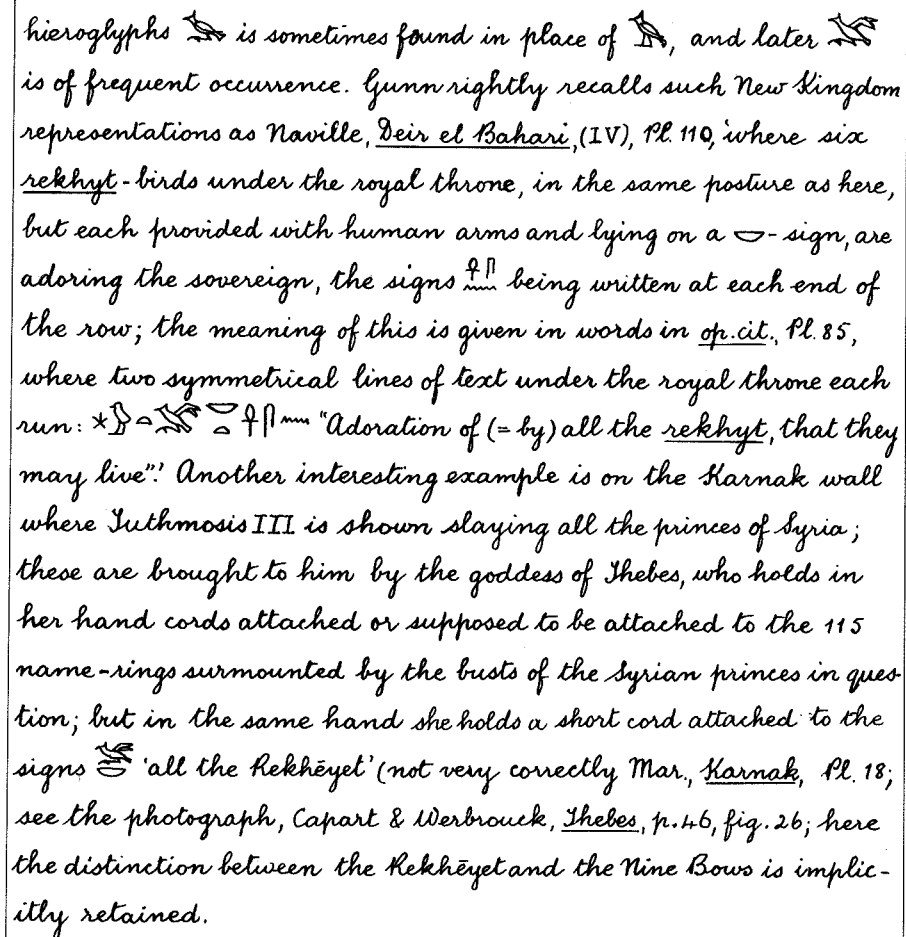 hieroglyphs 𓅚 is sometimes found in place of 𓅛, and later 𓅚
is of frequent occurrence. Gunn rightly recalls such New Kingdom
representations as Naville, Deir el Bahari, (IV), Pl. 110, 'where six
rekhyt-birds under the royal throne, in the same posture as here,
but each provided with human arms and lying on a 𓎟-sign, are
adoring the sovereign, the signs 𓋹𓋴𓈖 being written at each end of
the row; the meaning of this is given in words in op. cit., Pl. 85,
where two symmetrical lines of text under the royal throne each
run: 𓇼𓅱𓏏𓅚𓎟𓏏𓋹𓋴𓈖 "Adoration of (= by) all the rekhyt, that they
may live".' Another interesting example is on the Karnak wall
where Tuthmosis III is shown slaying all the princes of Syria;
these are brought to him by the goddess of Thebes, who holds in
her hand cords attached or supposed to be attached to the 115
name-rings surmounted by the busts of the Syrian princes in ques-
tion; but in the same hand she holds a short cord attached to the
signs 𓅚𓎟 'all the Rekhēyet' (not very correctly Mar., Karnak, Pl. 18;
see the photograph, Capart & Werbrouck, Thebes, p. 46, fig. 26; here
the distinction between the Rekhēyet and the Nine Bows is implic-
itly retained.